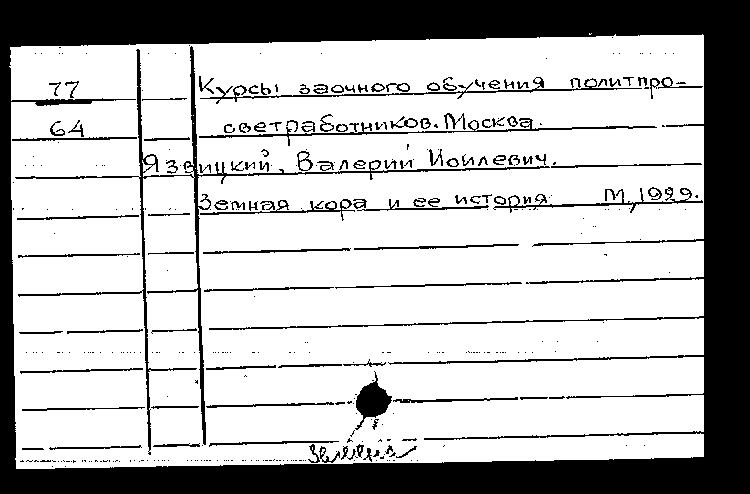 77 Курсы заочного обучения политпро-
64 светработников. Москва.
Язвицкий, Валерий Иоилевич.
Земная кора и ее история М, 1929.